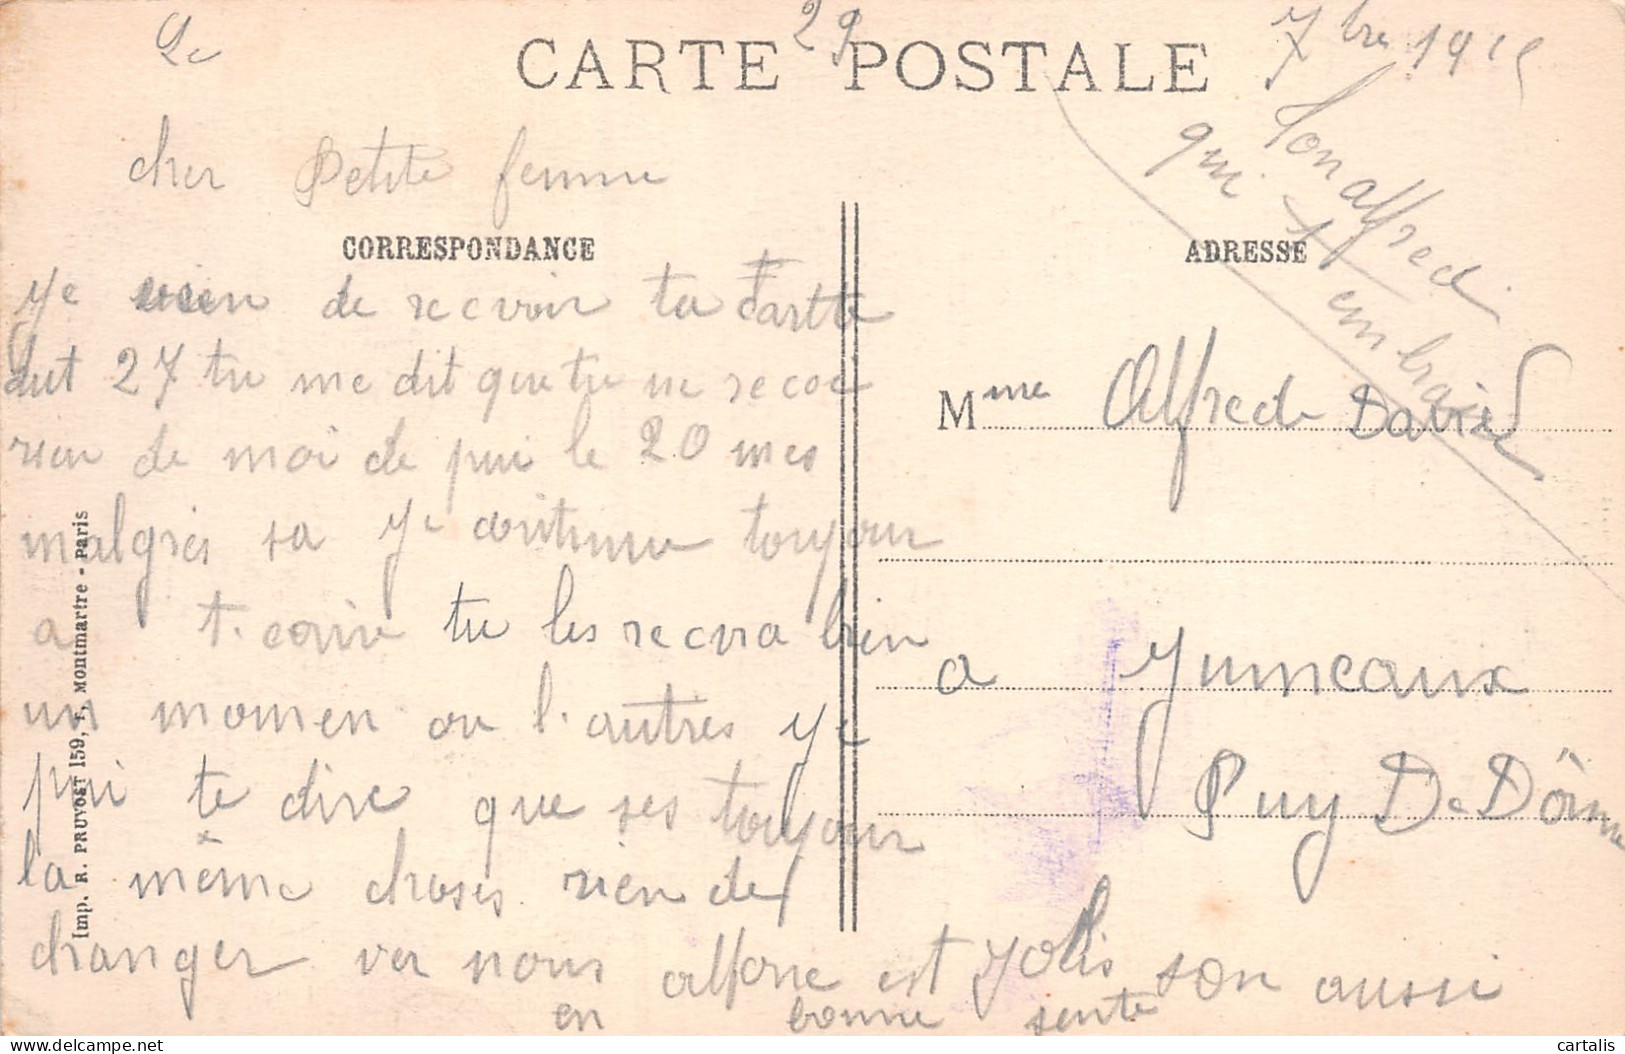 Le 29 7bre 1915
CARTE POSTALE
cher Petite femme
CORRESPONDANCE
ye vien de recvoir ta Cartte
dut 27 tu me dit que tu ne recoe
rien de moi de pui le 20 mes
malgres sa ye continue touyour
a t. ecrire tu les recvra bien
un momen ou l'autres ye
pui te dire que ses touyour
la même choses rien de
changer ver nous alfone est Yolis son aussi
en bonne sente
Ton alfred
qui t'embrasse
ADRESSE
Mme Alfred David
a Yumeaux
Puy De Dôme
Imp. R. PRUVOST 159, r. MONTMARTRE - Paris
cartalis
delcampe.net